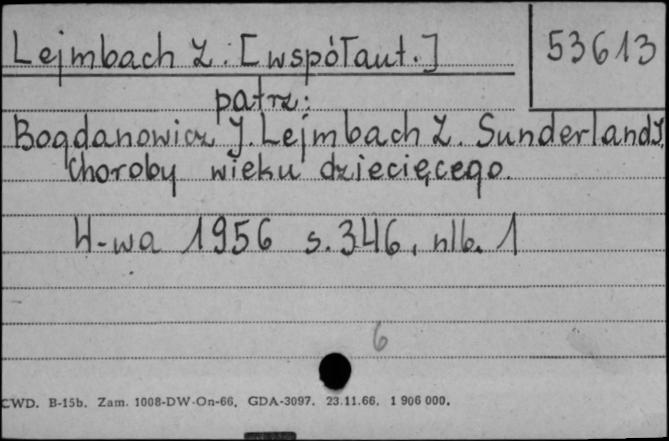 Lejmbach Z. [współaut.]
53613
patrz:
Bogdanowicz J. Lejmbach Z. Sunderland J.
Choroby wieku dziecięcego.
W-wa 1956 s. 346, nlb. 1
6
CWD. B-15b. Zam. 1008-DW-On-66. GDA-3097. 23.11.66. 1 906 000.